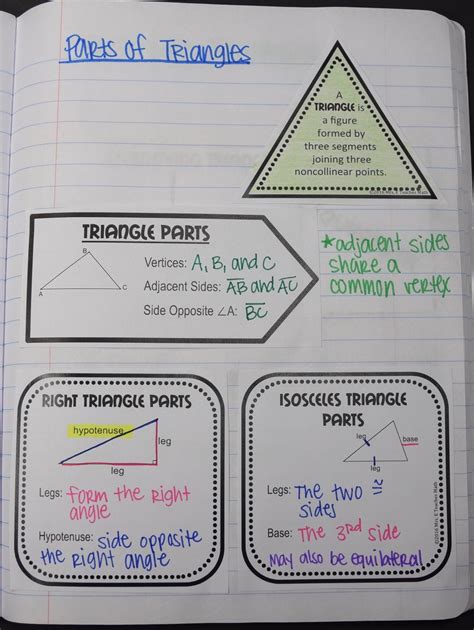 Parts of Triangles
A
TRIANGLE is
a figure
formed by
three segments
joining three
noncollinear points.
TRIANGLE PARTS
B
A
C
Vertices: A, B, and C
Adjacent Sides: A̅B̅ and A̅C̅
Side Opposite ∠A: B̅C̅
*adjacent sides
share a
common vertex
RIGHT TRIANGLE PARTS
hypotenuse
leg
leg
Legs: form the right
angle
Hypotenuse: side opposite
the right angle
ISOSCELES TRIANGLE
PARTS
leg
base
leg
Legs: The two ≅
sides
Base: The 3rd side
may also be equilateral